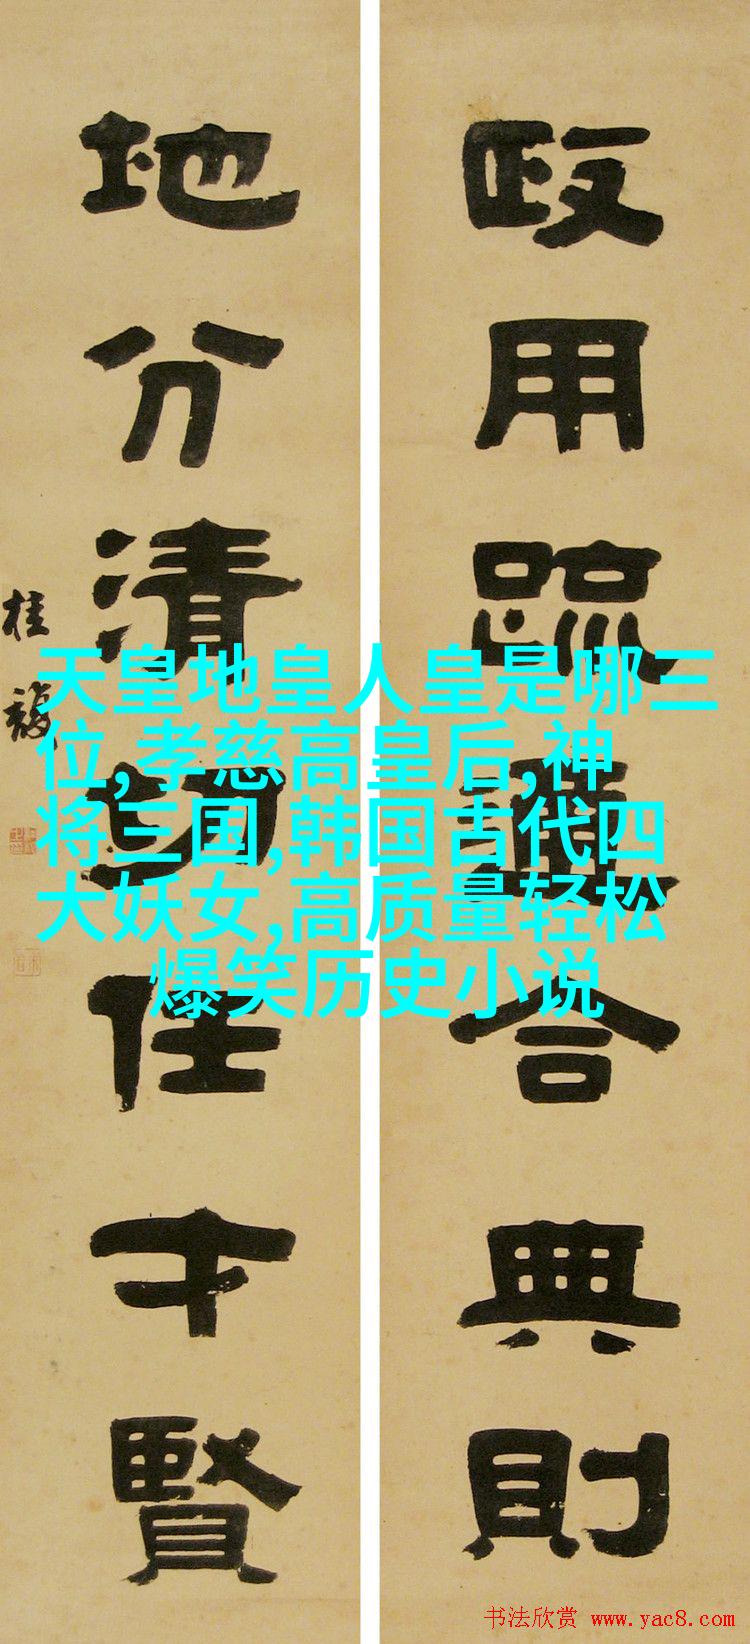 政用疏通合典則
地分清切任才賢
桂馥
天皇地皇人皇是哪三
位,孝慈高皇后,神
将三国,韩国古代四
大妖女,高质量轻松
爆笑历史小说
书法欣赏 www.yac8.com